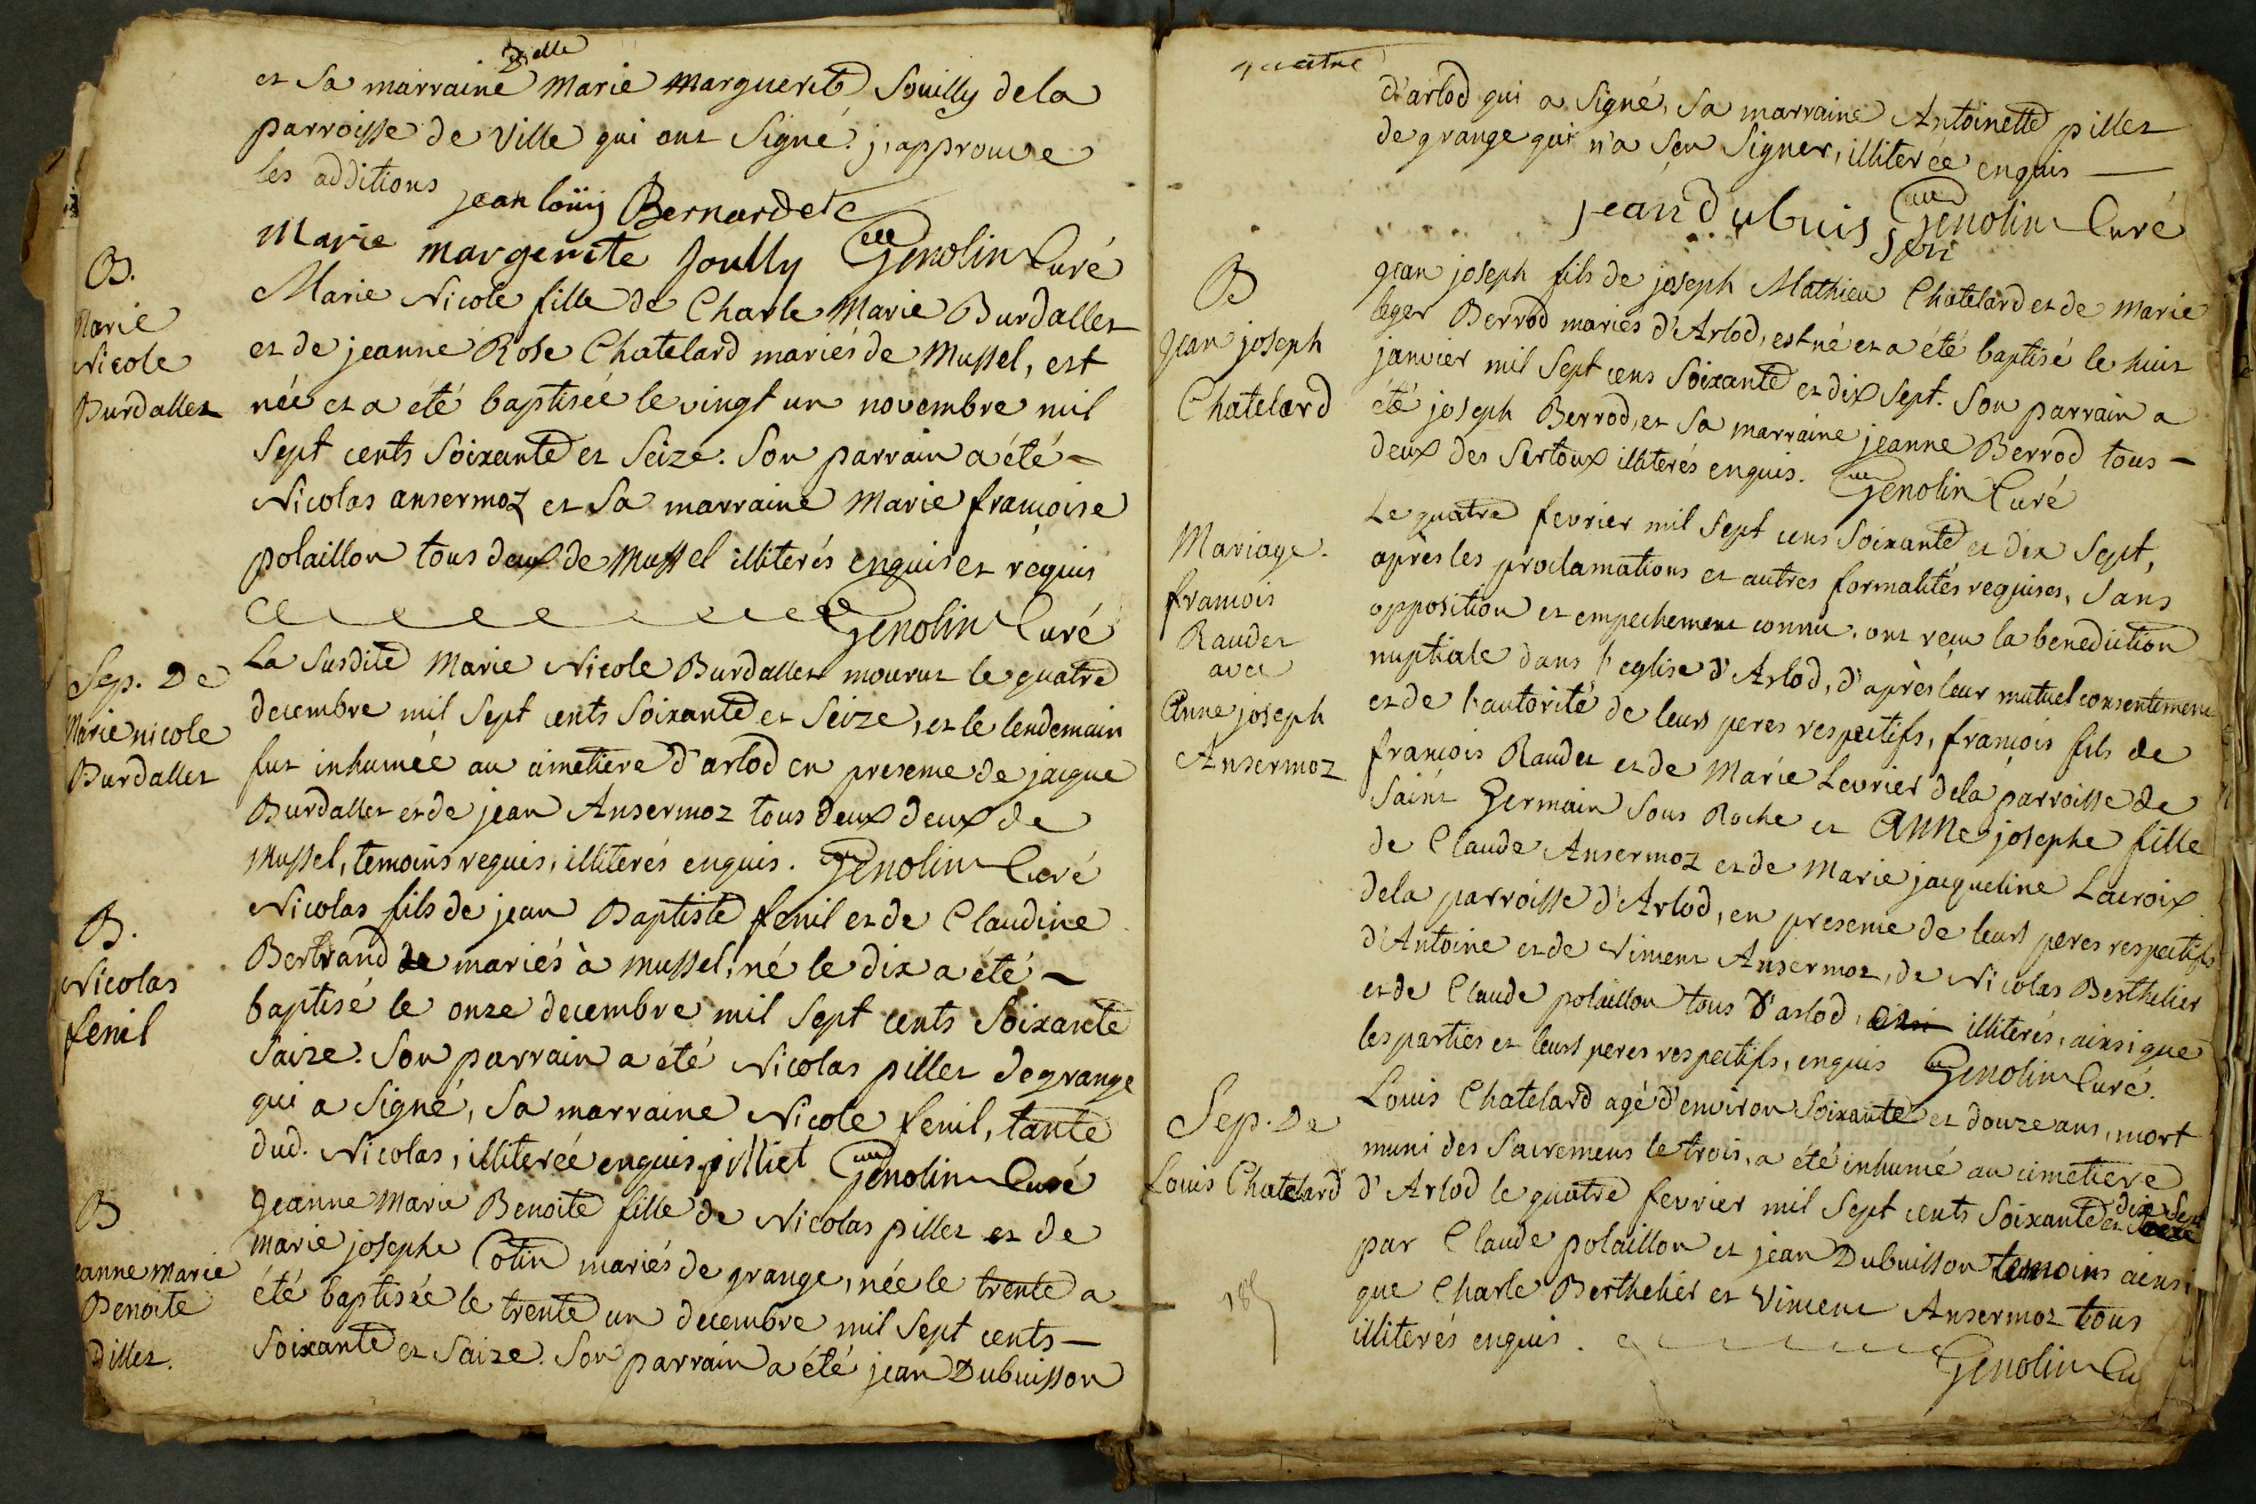 Delle
et Sa marraine Marie Marguerite Souilly dela
parroisse de Ville qui ont Signé. j'approuve
les additions jean loüij Bernardete
Marie margerite Joully Genolin Curé
B.
Marie
Nicole
Burdallet
Marie Nicole fille de Charle Marie Burdallet
et de jeanne Rose Chatelard mariés de Mussel, est
née et a été baptisée le vingt un novembre mil
Sept cents Soixante et Seize. Son parrain a été
Nicolas ansermoz et Sa marraine Marie françoise
polaillon tous deux de Mussel illiterés enquis et réquis
Genolin Curé
Sep. De
Marie nicole
Burdallet
La Susdite Marie Nicole Burdallet mourut le quatre
decembre mil Sept cents Soixante et Seize, et le lendemain
fut inhumée au cimetiere d'arlod en presence de jacque
Burdallet et de jean Ansermoz tous deux deux de
Mussel, temoins requis, illiterés enquis. Genolin Curé
B.
Nicolas
fenil
Nicolas fils de jean Baptiste fenil et de Claudine
Bertrand de mariés à Mussel, né le dix a été
baptisé le onze decembre mil Sept cents Soixante
Saize. Son parrain a été Nicolas pillet de grange
qui a Signé, Sa marraine Nicole fenil, tante
dud. Nicolas, illiterée enquis. pilliet Genolin Curé
B
jeanne Marie
Benoite
Pillet.
Jeanne Marie Benoite fille de Nicolas pillet et de
Marie josephe Cotin mariés de grange, née le trente a
été baptisée le trente un decembre mil Sept cents
Soixante et Saize. Son parrain a été jean Dubuisson
quatre
d'arlod qui a Signé, Sa marraine Antoinette pillet
de grange qui n'a Sçu Signer, illiterée enquis
jean dubuis son Genolin Curé
B
Jean joseph
Chatelard
Jean joseph fils de joseph Mathieu Chatelard et de Marie
leger Berrod mariés d'Arlod, est né et a été baptisé le huit
janvier mil Sept cens Soixante et dix Sept. Son parrain a
été joseph Berrod, et Sa marraine jeanne Berrod tous
deux des Sertoux illiterés enquis. Genolin Curé
Mariage.
françois
Raudet
avec
Anne joseph
Ansermoz
Le quatre fevrier mil Sept cens Soixante et dix Sept,
après les proclamations et autres formalités requises, Sans
opposition et empechement connu, ont reçu la benediction
nuptiale dans l'eglise d'Arlod, d'après leur mutuel consentement
et de l'autorité de leurs peres respectifs, françois fils de
françois Raudet et de Marie Levrier dela parroisse de
Saint Germain Sous Roche et Anne josephe fille
de Claude Ansermoz et de Marie jacqueline Lacroix
dela parroisse d'Arlod, en presence de leurs peres respectifs
d'Antoine et de Vincent Ansermoz, de Nicolas Berthelier
et de Claude polaillon tous d'arlod, ainsi illiterés, ainsi que
les parties et leurs peres respectifs, enquis Genolin Curé.
Sep. De
Louis Chatelard
Louis Chatelard agé d'environ Soixante et douze ans, mort
muni des Sacremens le trois, a été inhumé au cimetiere
d'Arlod le quatre fevrier mil Sept cents Soixante et dix Sept
par Claude polaillon et jean Dubuisson temoins ainsi
que Charle Berthelier et Vincent Ansermoz tous
illiterés enquis.
Genolin Cu